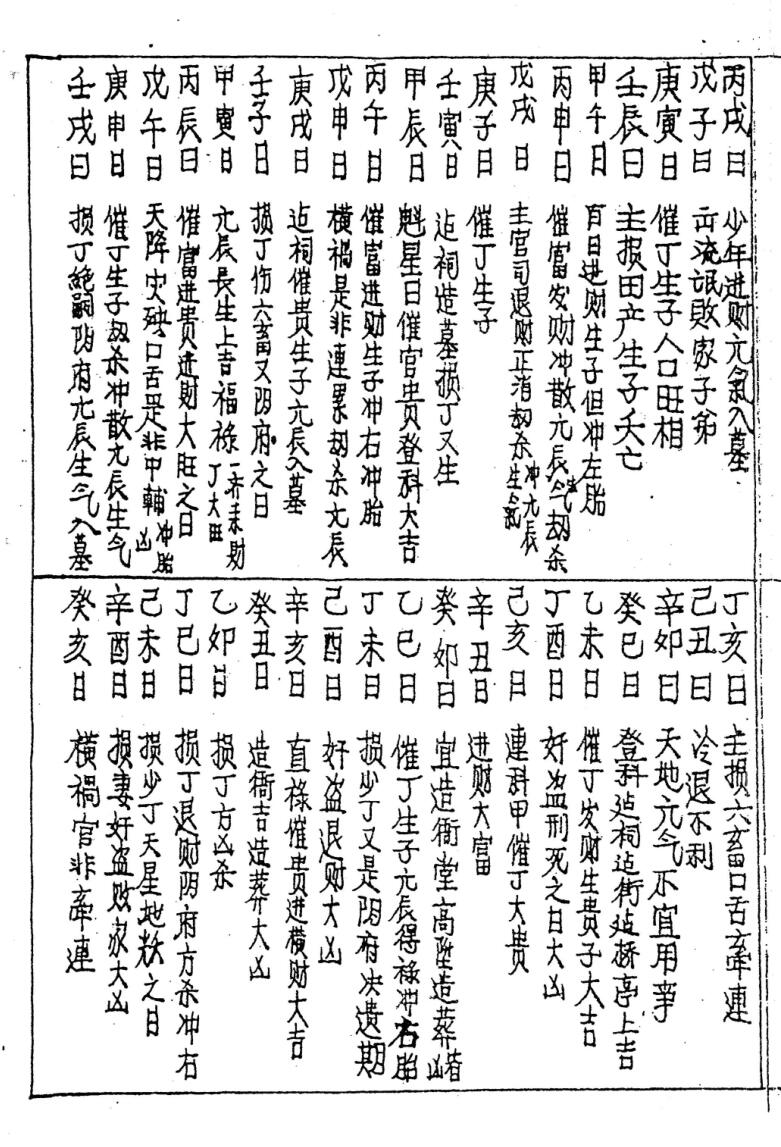 丙戌日 少年进财元氣入墓
戊子日 流氓敗家子弟
庚寅日 催丁生子人口旺相
壬辰曰 主损田产生子夭亡
甲午日 百日进财生子但冲左胎
丙申日 催富发财冲散元辰气劫杀
戊戌日 主官司退财正消劫杀冲元辰生氣
庚子日 催丁生子
壬寅日 造祠造墓损丁又生
甲辰日 魁星日催官贵登科大吉
丙午日 催富进财生子冲右冲胎
戊申日 横禍是非連累劫杀元辰
庚戌日 造祠催贵生子元辰入墓
壬子日 损丁伤六畜又阴府之日
甲寅日 元辰長生上吉福禄一齐来财丁大旺
丙辰日 催富进贵进財大旺之日
戊午日 天降灾殃口舌是非中輔冲胎凶
庚申日 催丁生子劫杀冲散元辰生气
壬戌曰 损丁絶嗣阴府元辰生气入墓
丁亥日 主损六畜口舌牵連
己丑曰 冷退不利
辛卯曰 天地元气不宜用事
癸巳日 登科造祠造街造桥亭上吉
乙未日 催丁发财生贵子大吉
丁酉日 奸盗刑死之日大凶
己亥日 連科甲催丁大贵
辛丑日 进财大富
癸卯日 宜造衙堂高堂造葬者凶
乙巳日 催丁生子元辰得禄冲右胎
丁未日 损少丁又是阴府决遗期
己酉日 奸盗退财大凶
辛亥日 直祿催贵进横财大吉
癸丑日 造衙吉造葬大凶
乙卯日 损丁方凶杀
丁巳日 损丁退财阴府方杀冲右
己未日 损少丁天星地煞之日
辛酉日 损妻奸盗败家大凶
癸亥日 横禍官非牵連